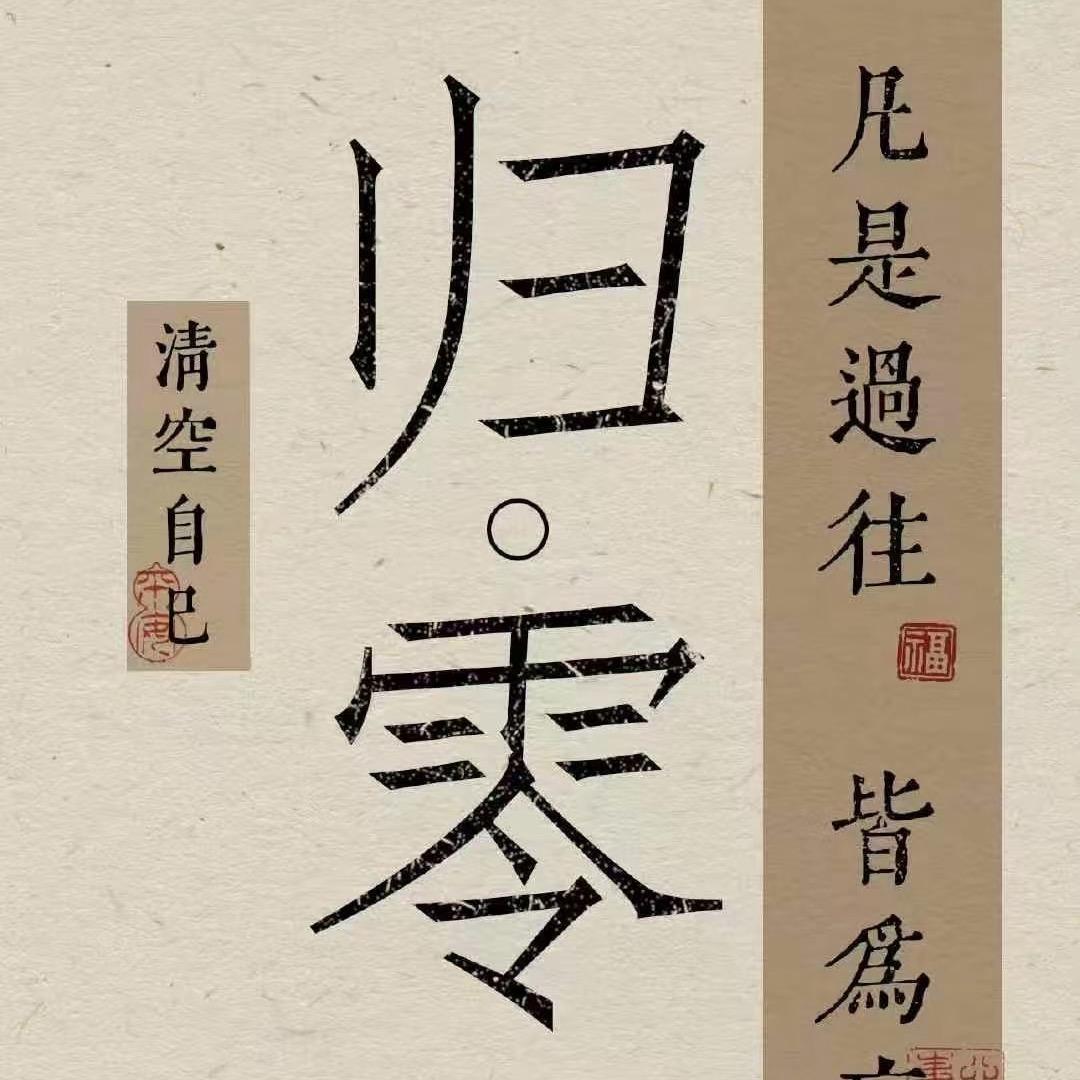 凡是過往
福
皆爲
归
零
清空自己